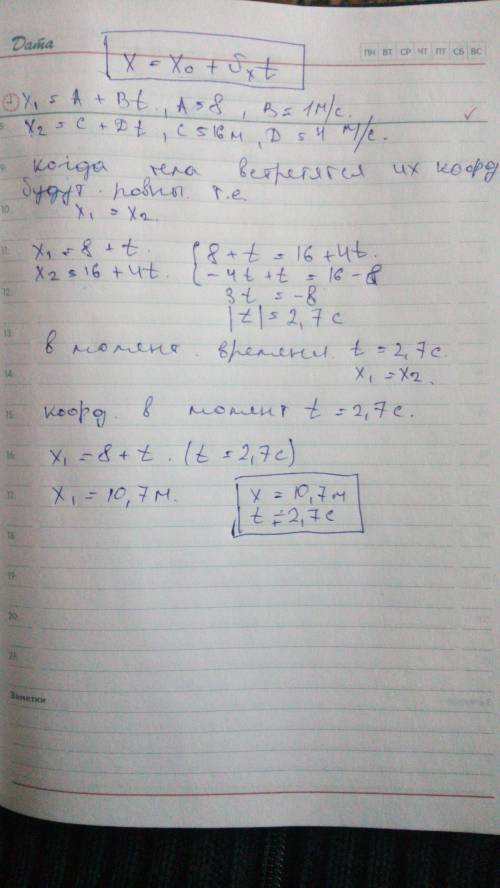 Дата
ПН ВТ СР ЧТ ПТ СБ ВС
x = x₀ + υₓt
x₁ = A + Bt, A = 8, B = 1 м/с.
8.
x₂ = C + Dt, C = 16м, D = 4 м/с.
9. когда тела встретятся их коорд
будут равны т.е
10. x₁ = x₂.
11. x₁ = 8 + t. { 8 + t = 16 + 4t.
x₂ = 16 + 4t. -4t + t = 16 - 8
12. 3t = -8
|t| = 2,7 с
13. в момент времени t = 2,7с.
14. x₁ = x₂.
15. коорд. в момент t = 2,7с.
16. x₁ = 8 + t. (t = 2,7с)
17. x₁ = 10,7м. x = 10,7м
t = 2,7с
18.
19.
20.
21.
Заметки